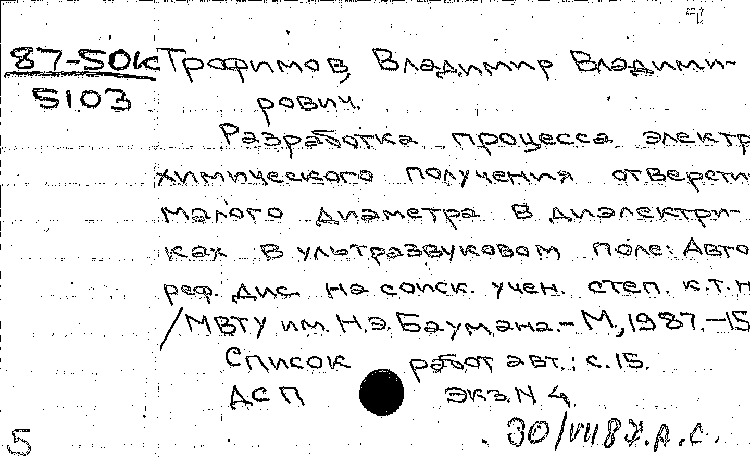 87-50к Трофимов, Владимир Владими-
5103 рович.
Разработка процесса электр
химического получения отверсти
малого диаметра в диэлектри-
ках в ультразвуковом поле: Авто
реф. дис. на соиск. учен. степ. к.т.н
/МВТУ им. Н.Э. Баумана.-М,1987.-15
Список работ авт.: с.15.
ДСП экз.N 4.
5 30/VII 87. р.с.